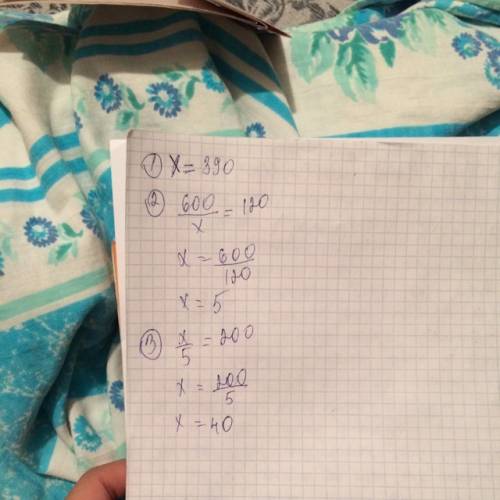 ① x = 390
② 600/x = 120
x = 600/120
x = 5
③ x/5 = 200
x = 200/5
x = 40